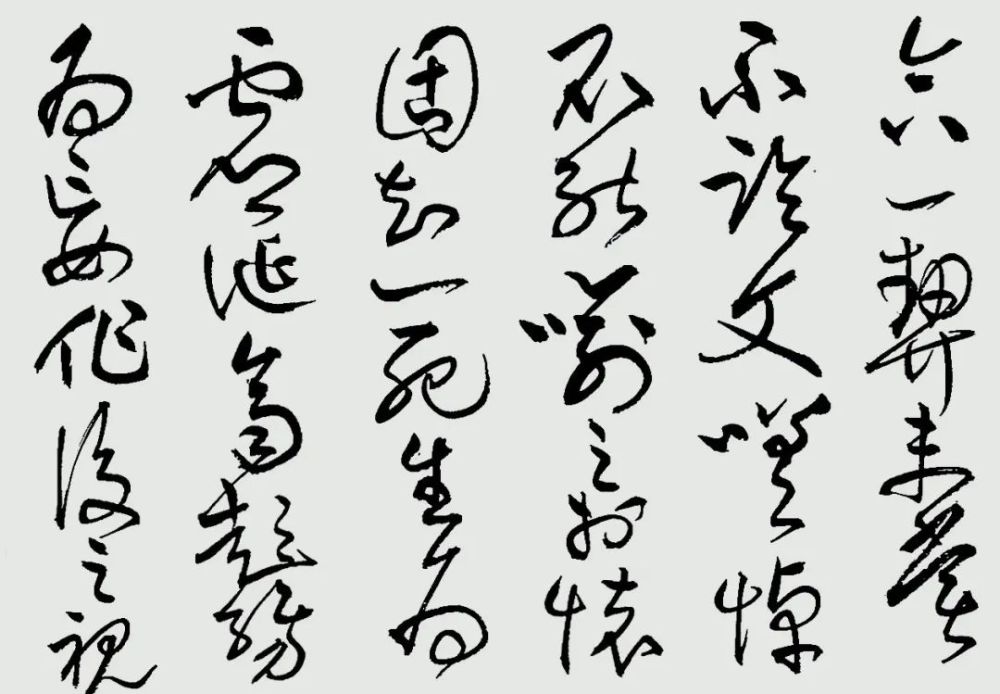 合一契未嘗
不臨文嗟悼
不能喻之於懷
固知一死生為
虛誕齊彭殤
為妄作後之視